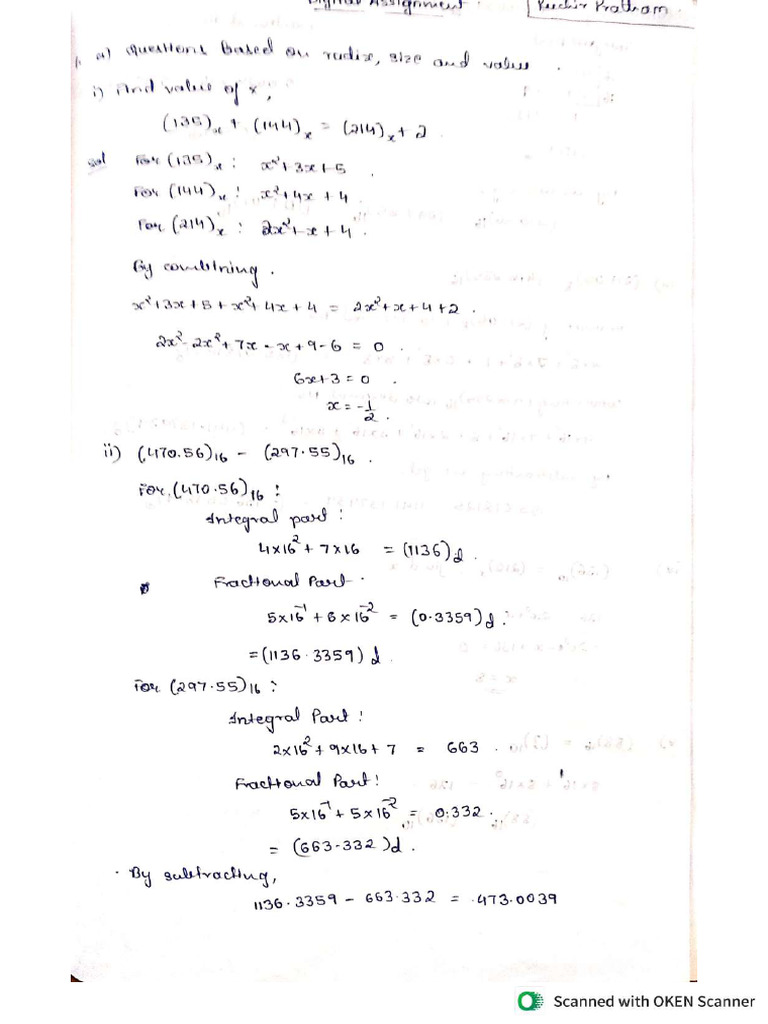 Digital Assignment
Pratham
1. a) Questions based on radix, size and value.
i) Find value of x,
(135)ₓ + (144)ₓ = (214)ₓ + 2
Sol For (135)ₓ : x² + 3x + 5.
For (144)ₓ : x² + 4x + 4.
For (214)ₓ : 2x² + x + 4.
By combining.
x² + 3x + 5 + x² + 4x + 4 = 2x² + x + 4 + 2.
2x² - 2x² + 7x - x + 9 - 6 = 0.
6x + 3 = 0.
x = -1/2.
ii) (470.56)₁₆ - (297.55)₁₆.
For (470.56)₁₆ :
Integral part :
4×16² + 7×16 = (1136)d.
Fractional Part.
5×16⁻¹ + 6×16⁻² = (0.3359)d.
= (1136.3359)d.
For (297.55)₁₆ :
Integral Part :
2×16² + 9×16 + 7 = 663.
Fractional Part :
5×16⁻¹ + 5×16⁻² = 0.332.
= (663.332)d.
By subtracting,
1136.3359 - 663.332 = 473.0039
Scanned with OKEN Scanner